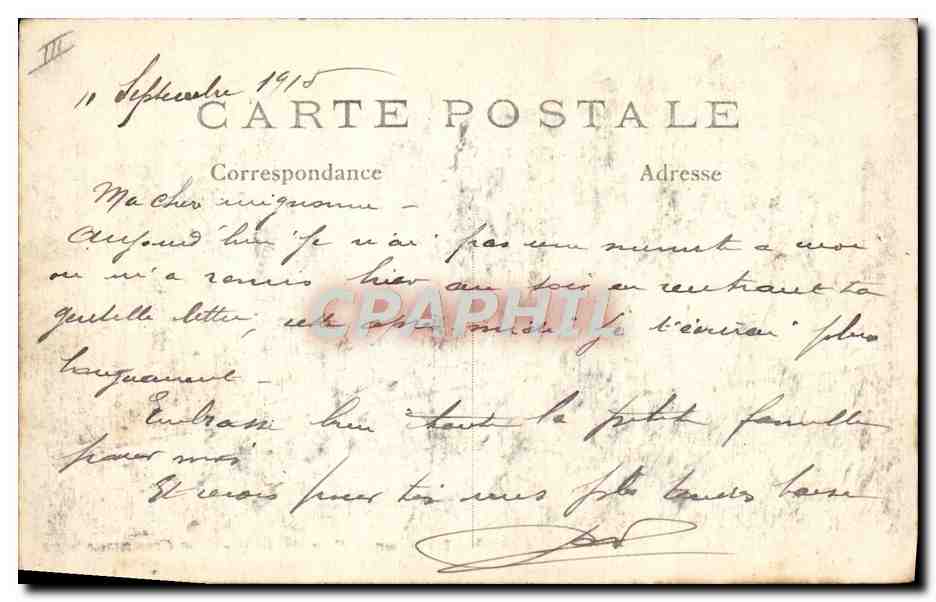 III
11 Septembre 1915
CARTE POSTALE
Correspondance
Adresse
Ma cher mignonne -
Aujourd'hui je n'ai pas une minute a moi
on m'a remis hier au soir en rentrant ta
gentille lettre, cet après midi je t'écrirai plus
longuement -
Embrasse bien toute la petite famille
pour moi
Et reçois pour toi mes plus tendres baise
CPAPHIL